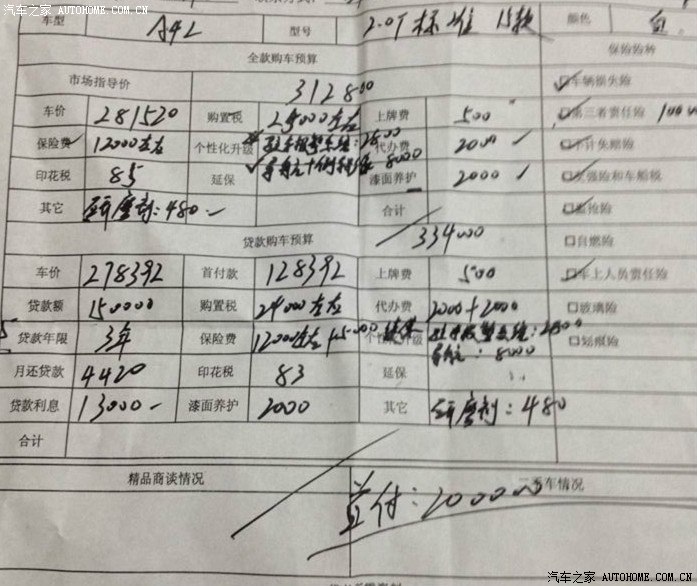 汽车之家 AUTOHOME.COM.CN
车型 A4L 型号 2.0T 标准 15款 颜色 白
全款购车预算 保险险种
市场指导价 312800 车辆损失险
车价 281520 购置税 25000左右 上牌费 500 第三者责任险 100
保险费 12000左右 个性化升级 2800 代办费 2000 ✓ 不计免赔险
印花税 85 延保 8000 漆面养护 2000 ✓ 交强险和车船税
其它 480 合计 334000 盗抢险
贷款购车预算 自燃险
车价 278392 首付款 128392 上牌费 500 车上人员责任险
贷款额 150000 购置税 24000左右 代办费 2000+2000 玻璃险
贷款年限 3年 保险费 12000左右 个性化升级 2800 划痕险
8000
月还贷款 4420 印花税 83 延保
贷款利息 13000 漆面养护 2000 其它 480
合计
精品商谈情况 二手车情况
首付:200000
汽车之家 AUTOHOME.COM.CN